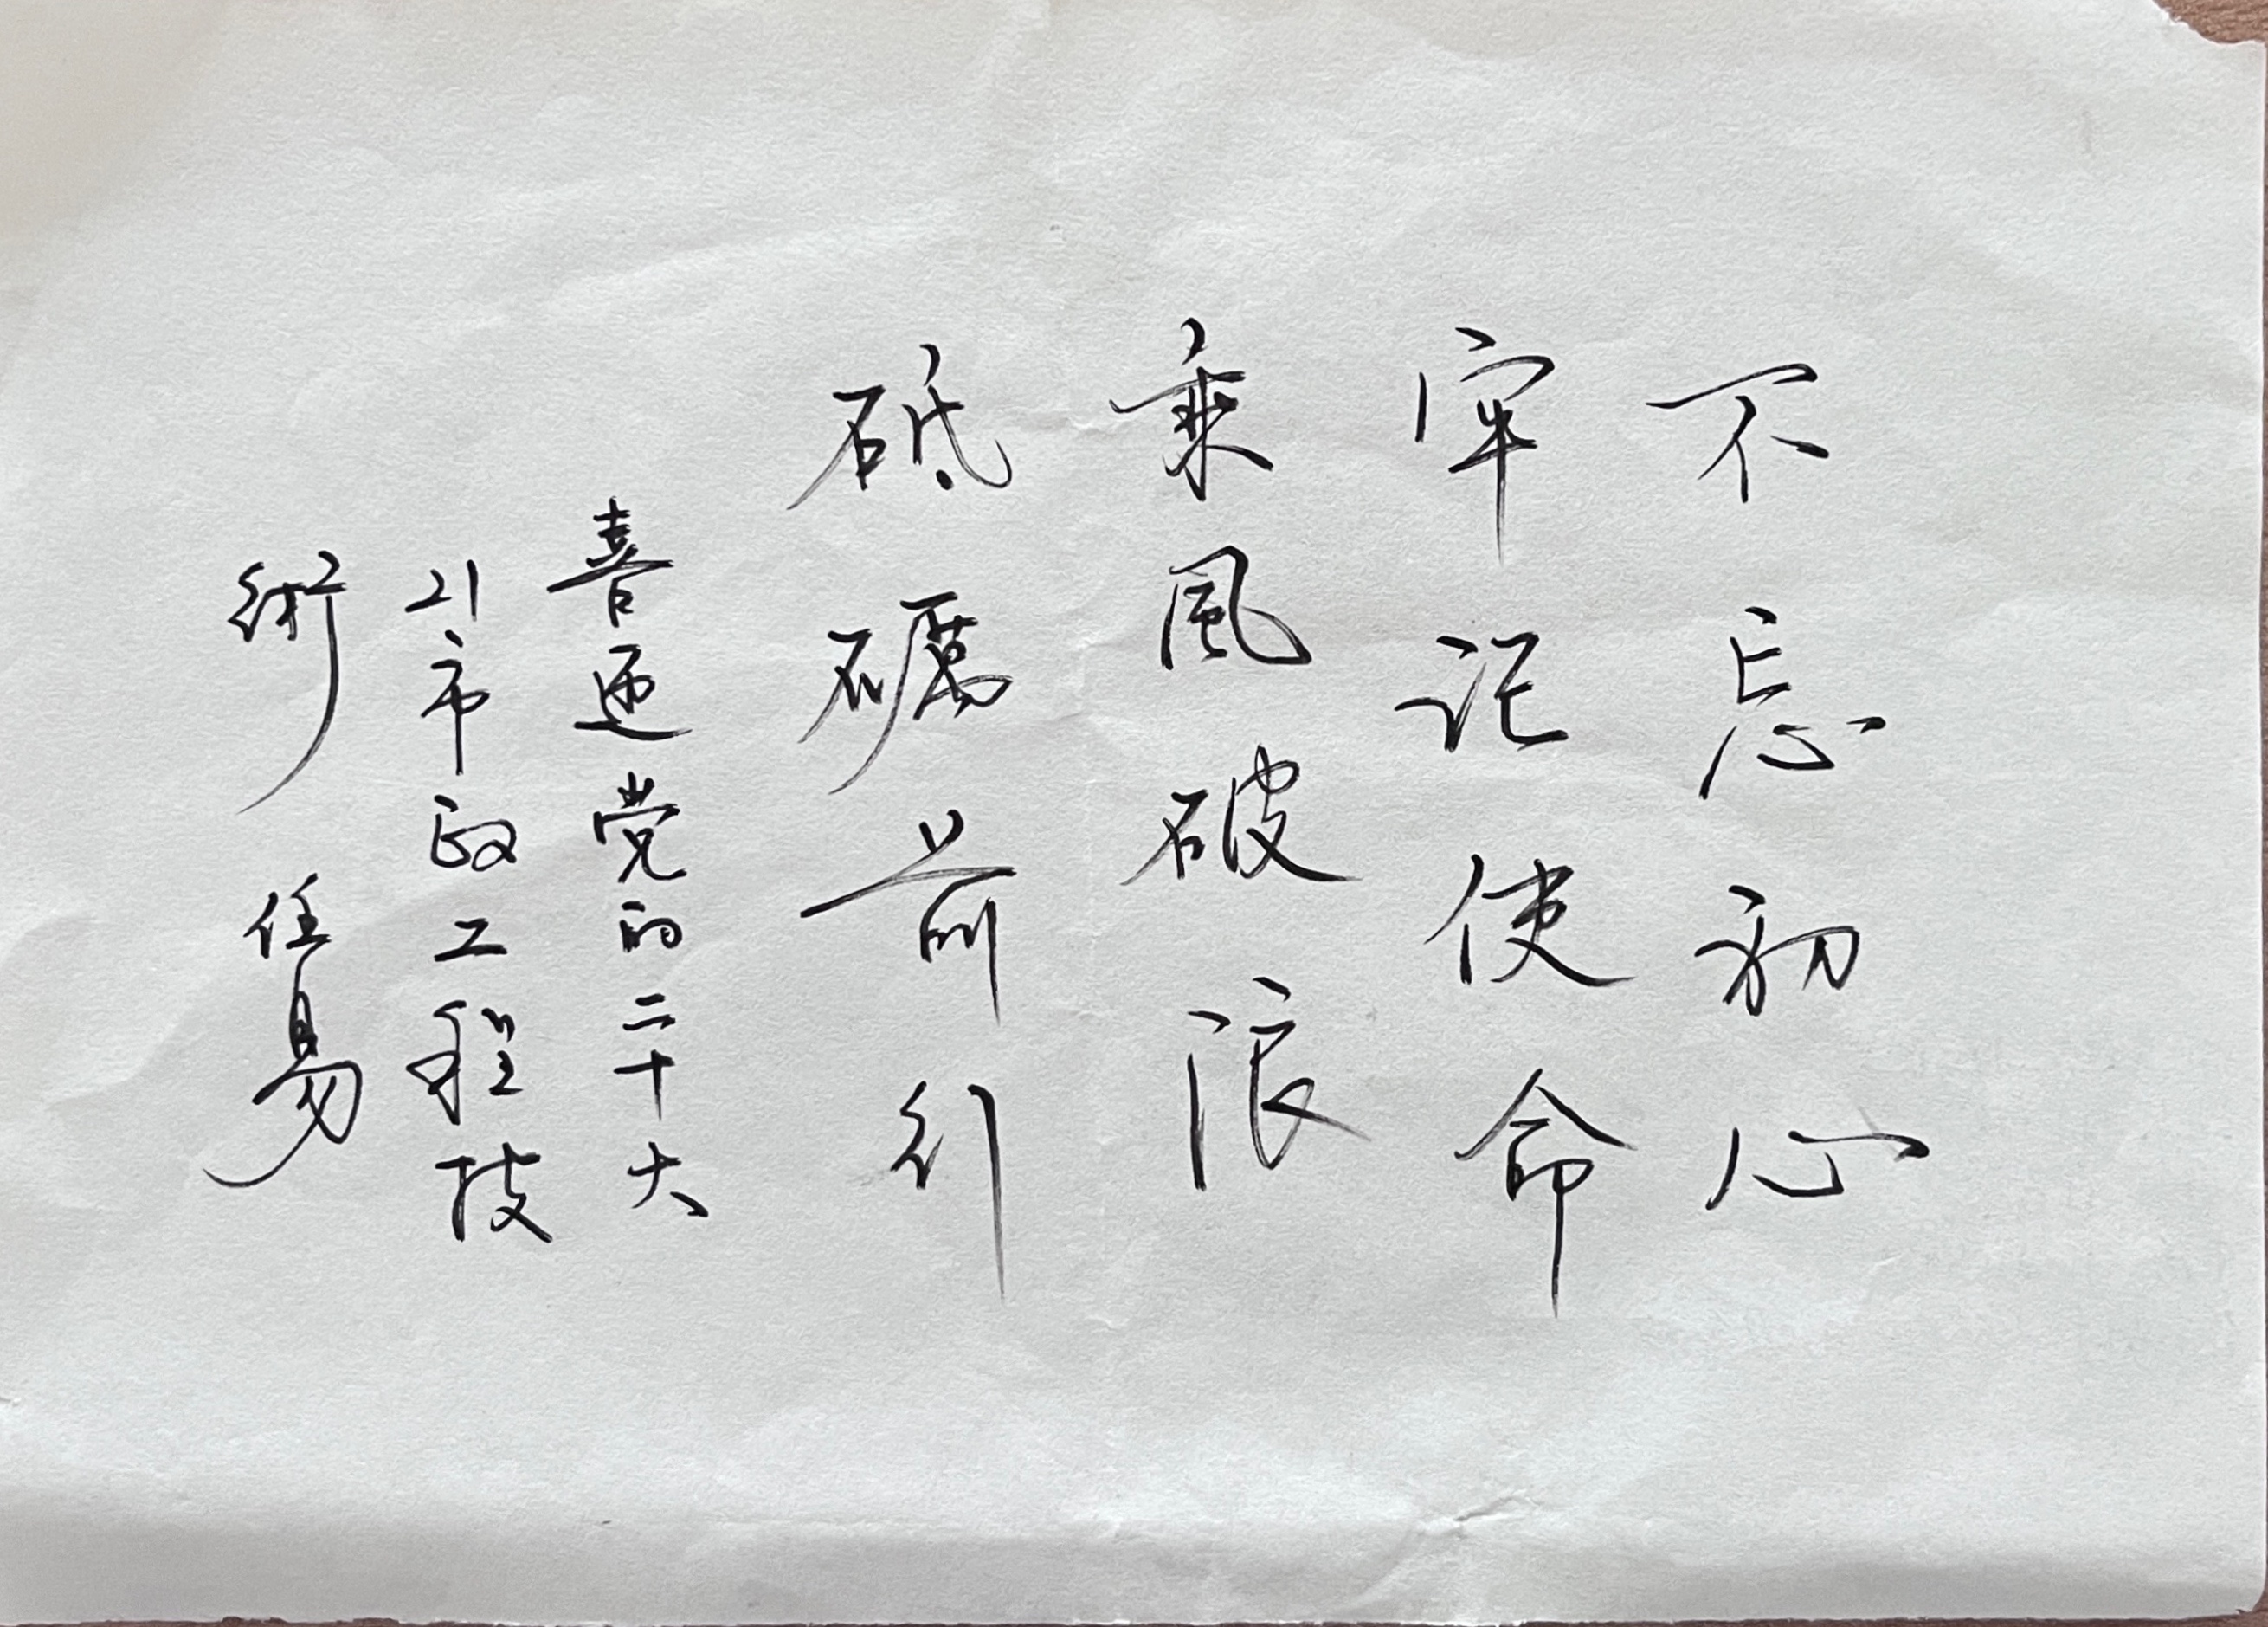 不忘初心
牢记使命
乘風破浪
砥礪前行
喜迎党的二十大
21市政工程技
術 任易